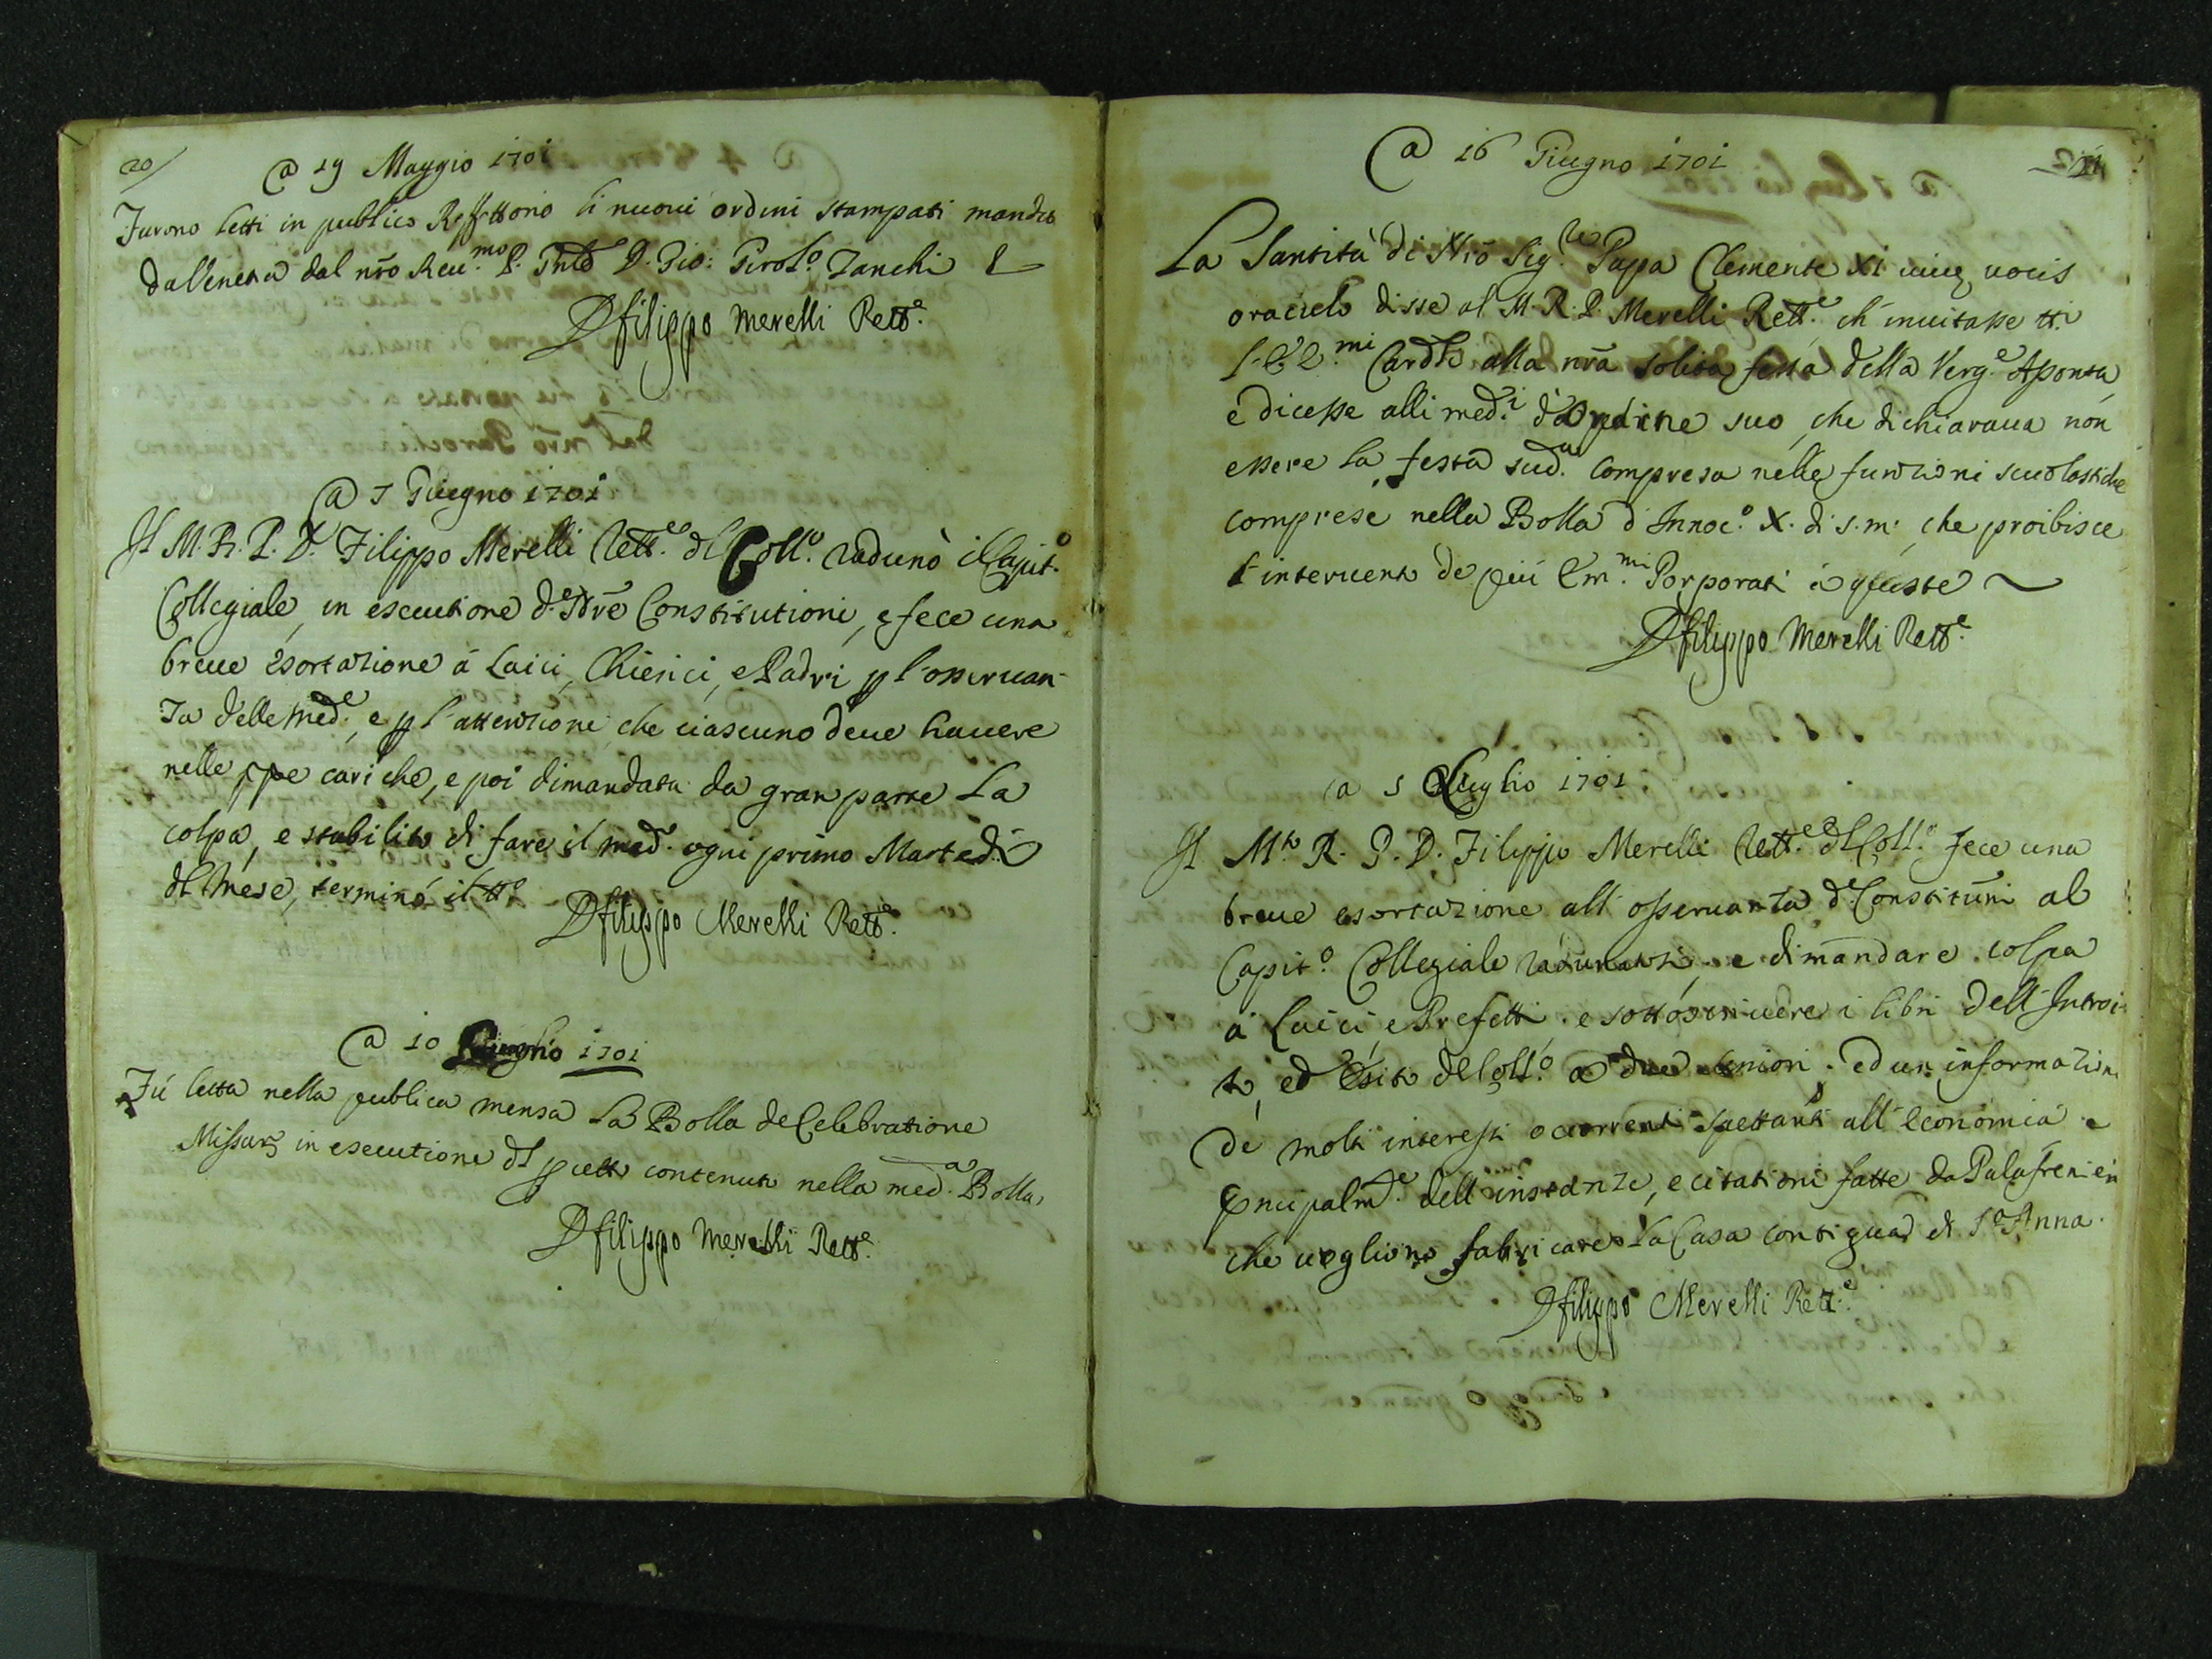 20/
@ 19 Maggio 1701
Furono letti in publico Refettorio li nuovi ordini stampati mandti
da Venetia dal nrō Reu.mo P. Gnle D. Gio: Girol.o Zanchi
D filippo Merelli Rett.e
@ 7 Giugno 1701
Il M. R. P. D. Filippo Merelli Rett.e dl Coll.o radunò il Capit.o
Collegiale, in esecutione d.e Nrē Constitutioni, e fece una
breue esortazione à Laici, Chierici, e Padri p l'osseruan-
za delle med.e, e p l'attenzione che ciascuno deue hauere
nelle ppe cariche, e poi dimandata da gran parte la
colpa, e stabilito di fare il med. ogni primo Martedi
dl Mese, terminò il tt.o
D filippo Merelli Rett.e
@ 10 1701
Fù letta nella publica mensa la Bolla de Celebratione
Missarz in esecutione dl pcetto contenuto nella med.a Bolla,
D filippo Merelli Rett.e
@ 16 Giugno 1701
La Santità di Nrō Sig.re Papa Clemente XI uiuę uocis
oraculo disse al M. R. P. Merelli Rett.e ch' inuitasse tt.i
l'E.mi Cardli alla nrā solita festa della Verg.e Assonta,
e dicesse alli med.i d'Ordine suo, che dichiaraua non
essere la festa sud.a compresa nelle funzioni scuolastiche
comprese nella Bolla d' Innoc.o X. di s.m., che proibisce
l'interuento de più Em.mi Porporati à queste
D filippo Merelli Rett.e
a 5 Luglio 1701
Il M.to R. P. D. Filippo Merelli Rett.e dl Coll.o fece una
breue esortazione all' osseruanza d.e Constitūni al
Capit.o Collegiale radunatosi, e dimandare colpa
à Laici, e Prefetti, e sottoscriuere i libri dell'Introi-
to, ed Esito del Coll.o a due seniori, ed un informazione
de molti interessi occorrenti spettanti all' economia e
principalm.e dell' instanze, e citationi fatte da Palafrenieri
che uogliono fabricare la Casa contigua di S.a Anna.
D filippo Merelli Rett.e